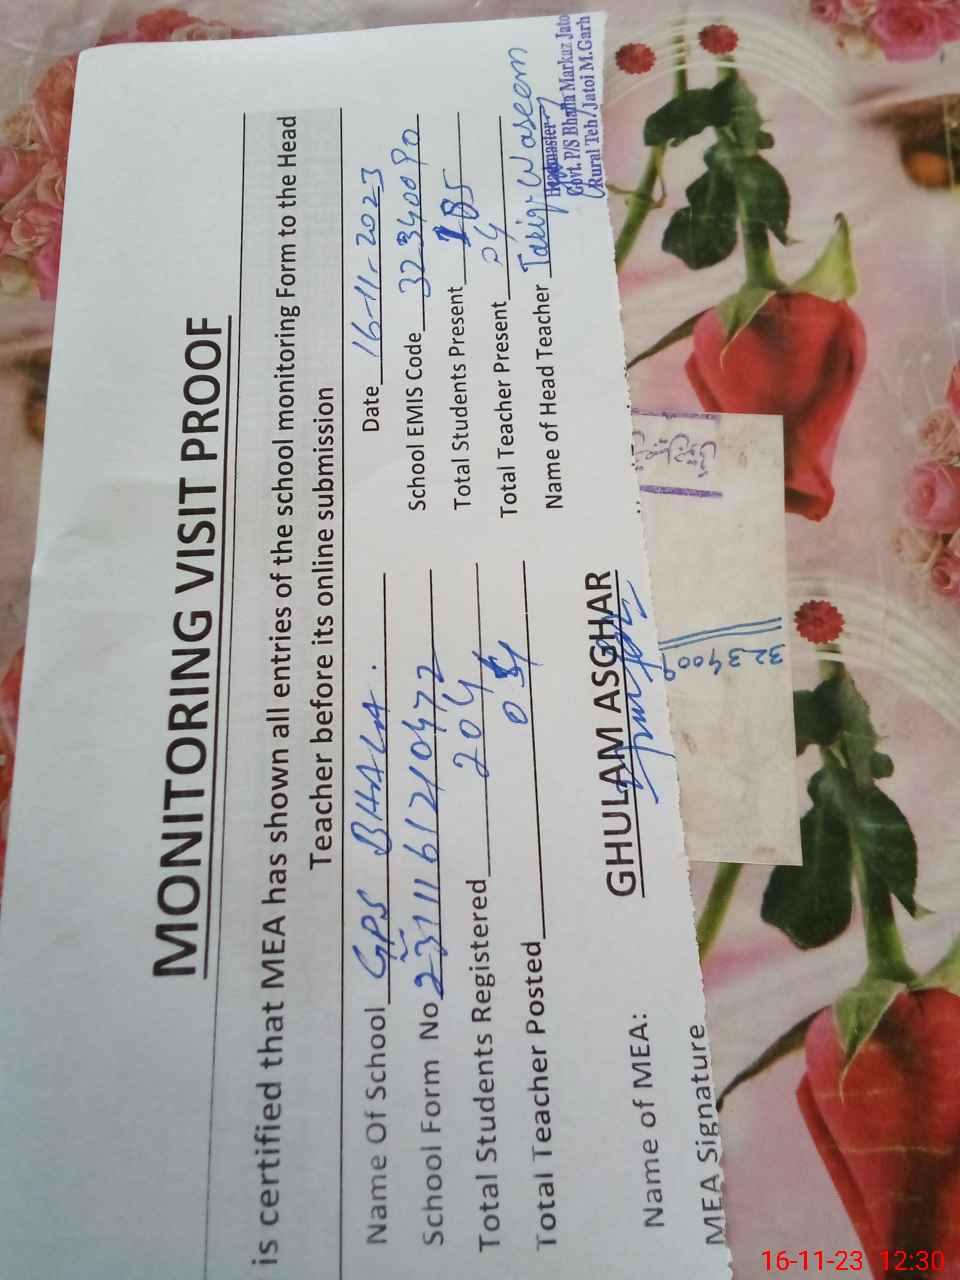 MONITORING VISIT PROOF
is certified that MEA has shown all entries of the school monitoring Form to the Head
Teacher before its online submission
Name Of School GPS BHALA. Date 16-11-2023
School Form No 2311161210472 School EMIS Code 32340090
Total Students Registered 204 Total Students Present 185
Total Teacher Posted 04 Total Teacher Present 04
Name of Head Teacher Tariq Waseem
Headmaster
Govt. P/S Bhalla Markaz Jatoi
Rural Teh/Jatoi M.Garh
Name of MEA: GHULAM ASGHAR
MEA Signature
3234009
16-11-23 12:30